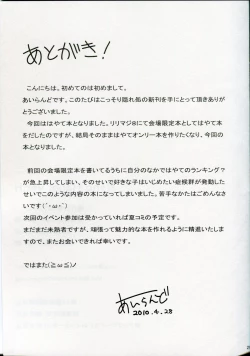 あとがき!
こんにちは。初めてのは初めまして。
あいらんどです。このたびはこっそり隠れ処の新刊を手にとって頂きありが
とうございました。
今回ははやて本となりました。リリマジ8にて会場限定本としてはやて本
をだしたのですが、結局そのままはやてオンリー本を作りたくなり、今回の
本となりました。
前回の会場限定本を書いてるうちに自分のなかではやてのランキング?
が急上昇してしまい、そのせいで好きな子はいじめたい症候群が発動した
せいでこのような内容の本になってしまいました。苦手なかたはごめんなさ
いです(´・ω・`)
次回のイベント参加は受かっていれば夏コミの予定です。
まだまだ未熟者ですが、頑張って魅力的な本を作れるように精進いたしま
すので、またお会いできれば幸いです。
ではまた(≧ω≦)ノ
あいらんど
2010.4.28